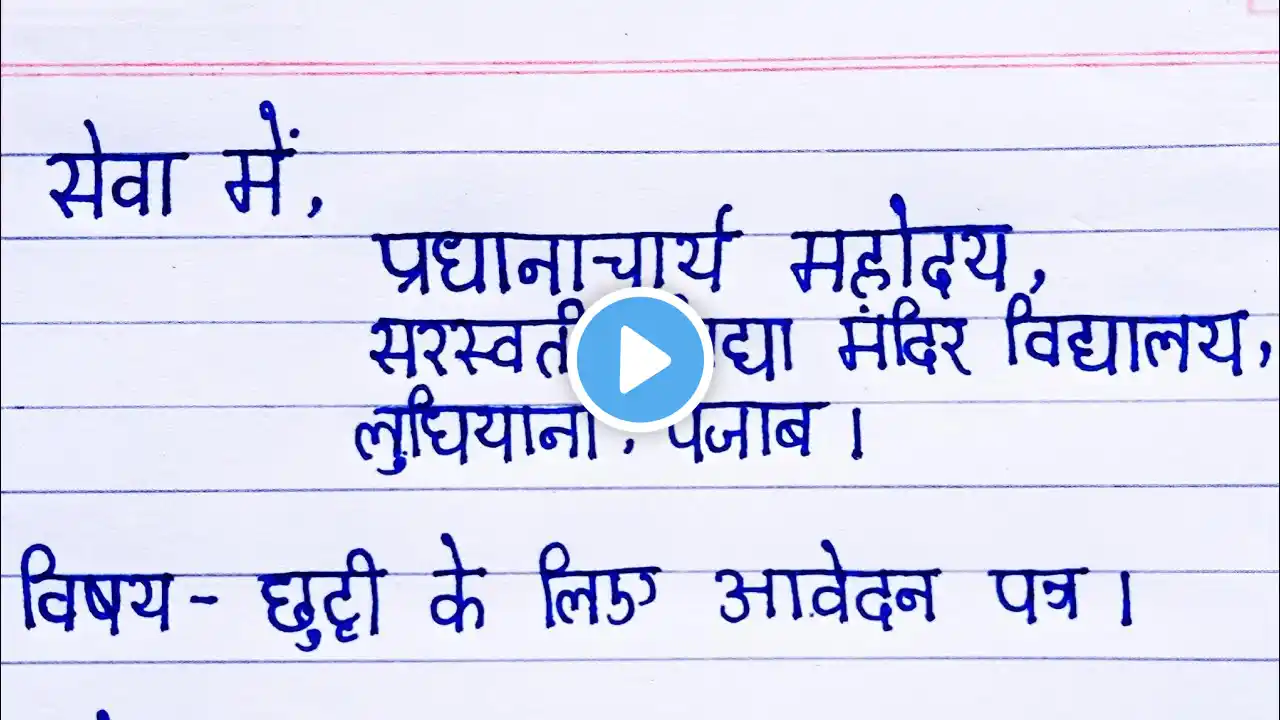 सेवा में,
प्रधानाचार्य महोदय,
सरस्वती मंदिर विद्यालय,
लुधियाना, पंजाब।
विषय - छुट्टी के लिए आवेदन पत्र।